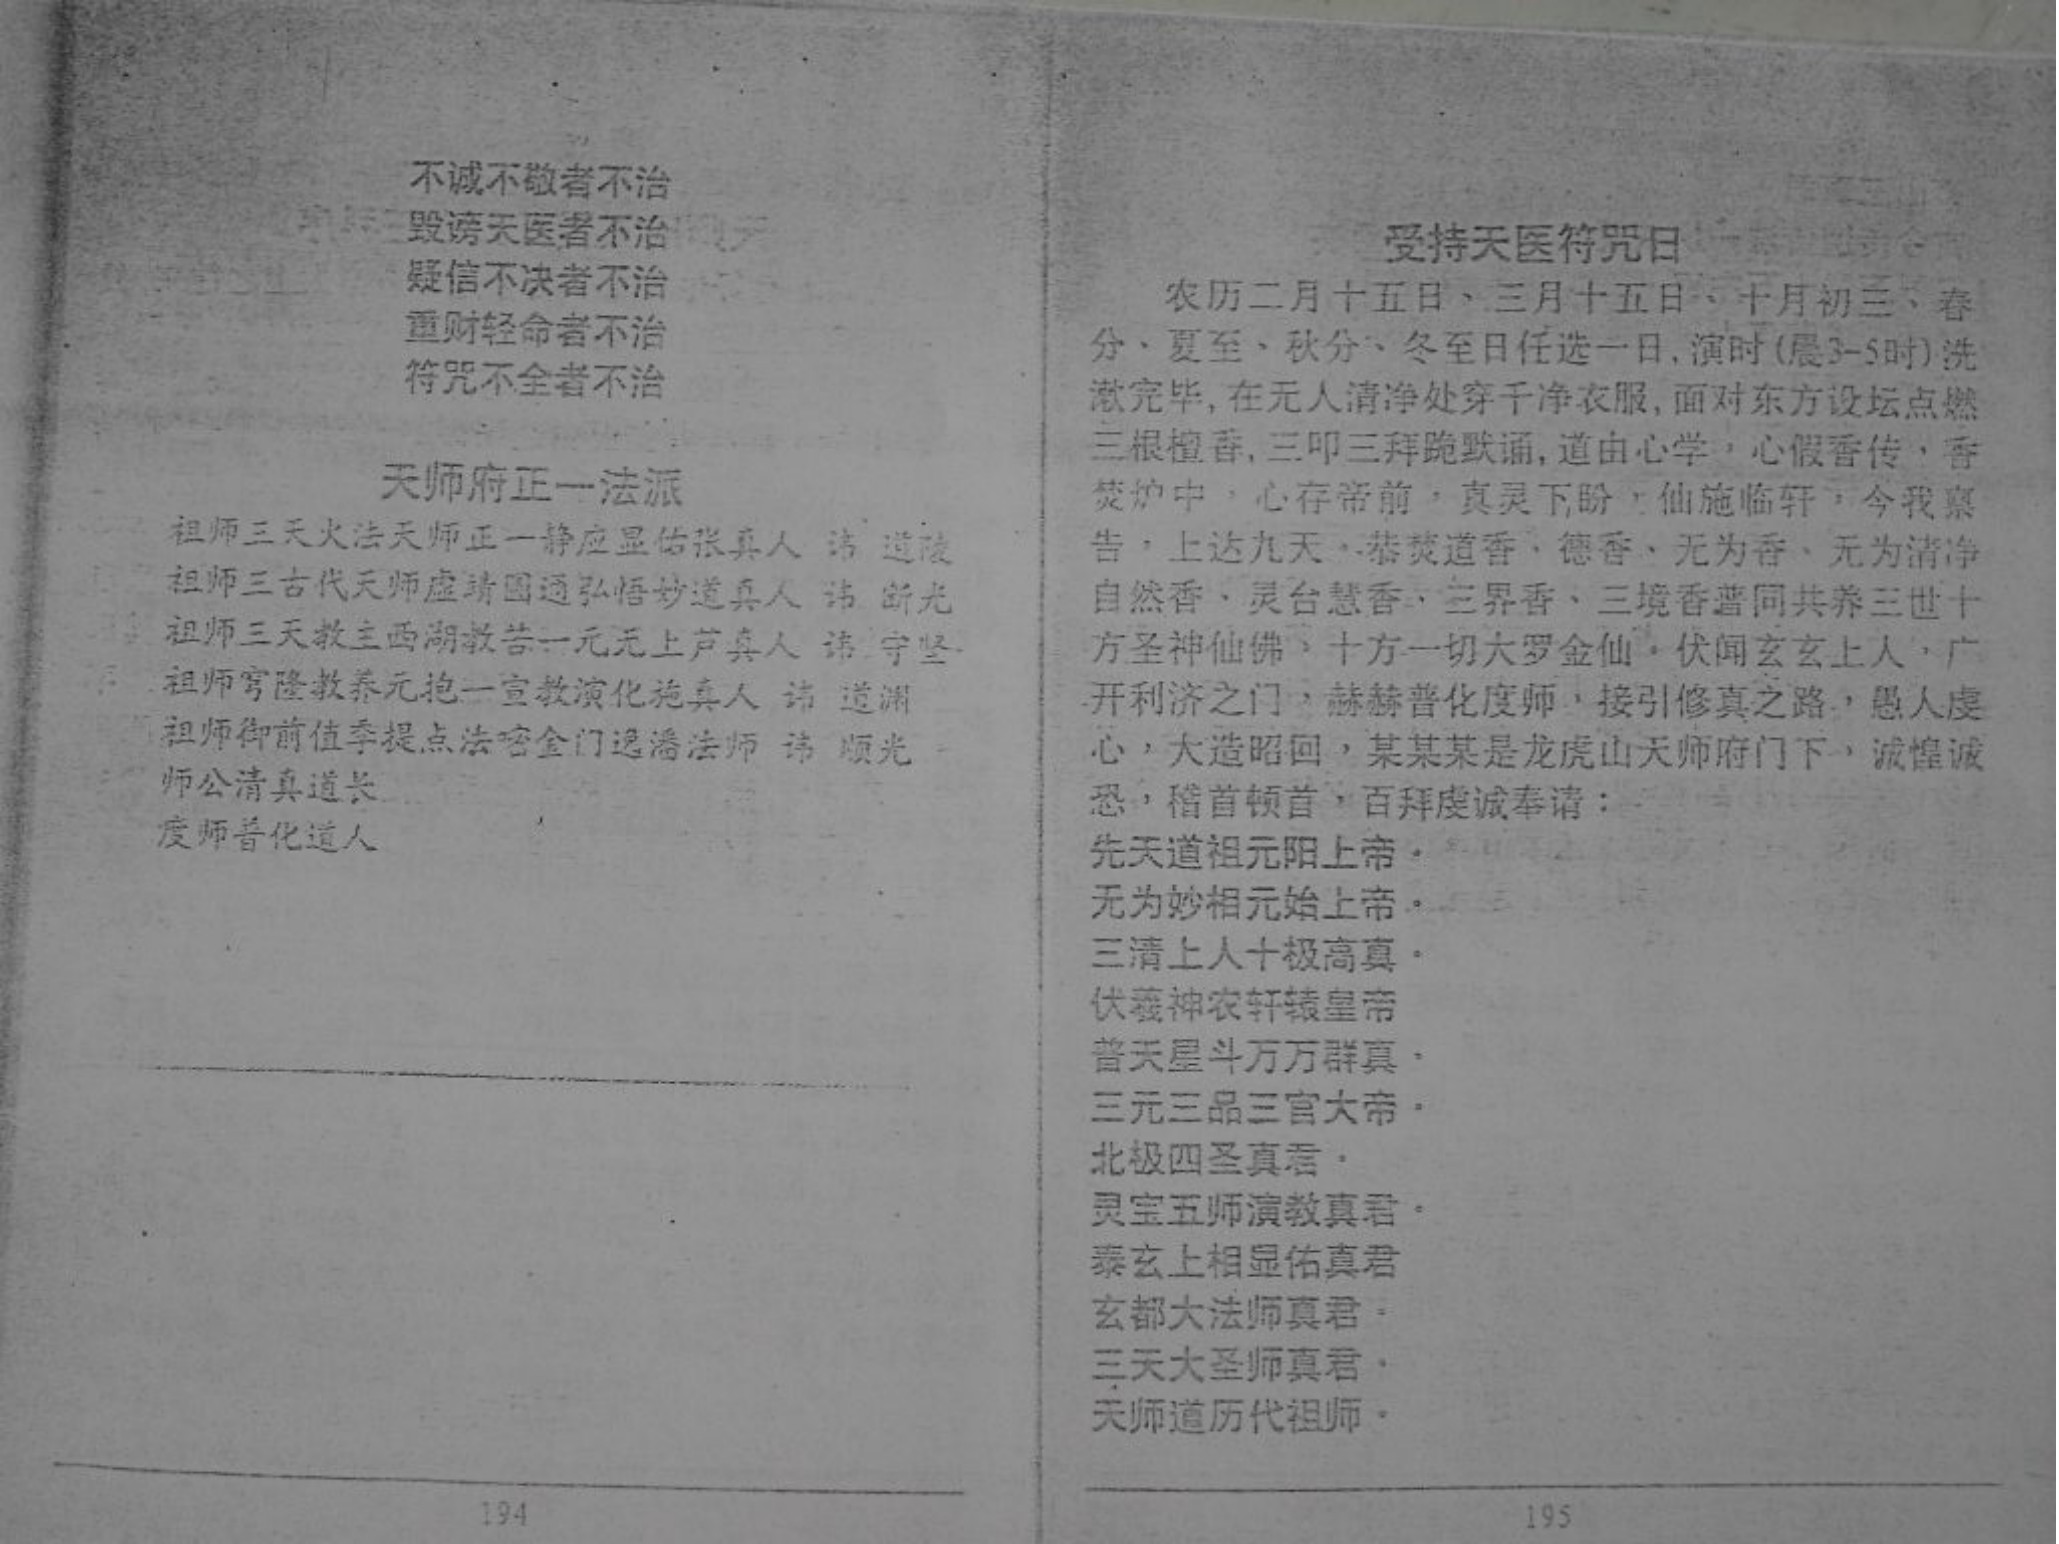 不诚不敬者不治
毁谤天医者不治
疑信不决者不治
重财轻命者不治
符咒不全者不治
天师府正一法派
祖师三天火法天师正一静应显佑张真人 讳 道陵
祖师三古代天师虚靖圆通弘悟妙道真人 讳 断光
祖师三天教主西湖教苦一元无上芦真人 讳 守坚
祖师穹隆教养元抱一宣教演化施真人 讳 道渊
祖师御前值季提点法 金门逸潘法师 讳 顺光
师公清真道长
度师普化道人
194
受持天医符咒日
农历二月十五日、三月十五日、十月初三、春
分、夏至、秋分、冬至日任选一日,演时(晨3-5时)洗
漱完毕,在无人清净处穿干净衣服,面对东方设坛点燃
三根檀香,三叩三拜跪默诵,道由心学,心假香传,香
焚炉中,心存帝前,真灵下盼,仙施临轩,今我禀
告,上达九天。恭焚道香、德香、无为香、无为清净
自然香、灵台慧香、三界香、三境香普同共养三世十
方圣神仙佛、十方一切大罗金仙。伏闻玄玄上人,广
开利济之门,赫赫普化度师,接引修真之路,愚人虔
心,大造昭回,某某某是龙虎山天师府门下,诚惶诚
恐,稽首顿首,百拜虔诚奉请:
先天道祖元阳上帝。
无为妙相元始上帝。
三清上人十极高真。
伏羲神农轩辕皇帝
普天星斗万万群真。
三元三品三官大帝。
北极四圣真君。
灵宝五师演教真君。
泰玄上相显佑真君
玄都大法师真君。
三天大圣师真君。
天师道历代祖师。
195